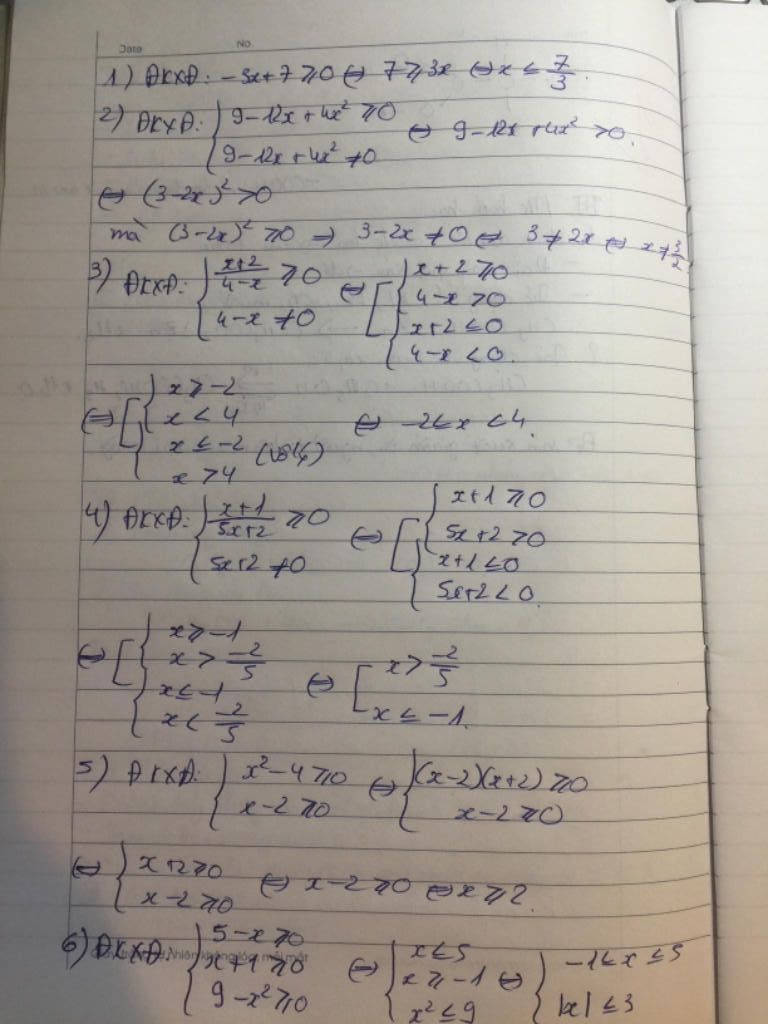 Date No.
1) ĐKXĐ: -3x+7 ⩾0 ⇔ 7⩾3x ⇔ x ≤ 7/3.
2) ĐKXĐ: { 9-12x+4x² ⩾0 ; 9-12x+4x² ≠0 ⇔ 9-12x+4x² >0.
⇔ (3-2x)² >0
mà (3-2x)² ⩾0 ⇒ 3-2x ≠0 ⇔ 3≠2x ⇔ x≠3/2
3) ĐKXĐ: { (x+2)/(4-x) ⩾0 ; 4-x ≠0 ⇔ [ { x+2 ⩾0 ; 4-x >0 ; { x+2 ≤0 ; 4-x <0.
⇔ [ { x ⩾ -2 ; x < 4 ; { x ≤ -2 ; x >4 (vô lý) ⇔ -2≤x <4.
4) ĐKXĐ: { (x+1)/(5x+2) ⩾0 ; 5x+2 ≠0 ⇔ [ { x+1 ⩾0 ; 5x+2 >0 ; { x+1 ≤0 ; 5x+2 <0.
⇔ [ { x⩾-1 ; x > -2/5 ; { x≤-1 ; x< -2/5 ⇔ [ x> -2/5 ; x≤ -1.
5) ĐKXĐ: { x²-4 ⩾0 ; x-2 ⩾0 ⇔ { (x-2)(x+2) ⩾0 ; x-2 ⩾0
⇔ { x+2⩾0 ; x-2⩾0 ⇔ x-2⩾0 ⇔ x⩾2.
6) ĐKXĐ: { 5-x⩾0 ; x+1⩾0 ; 9-x²⩾0 ⇔ { x≤5 ; x⩾-1 ; x²≤9 ⇔ { -1≤x ≤5 ; |x| ≤3